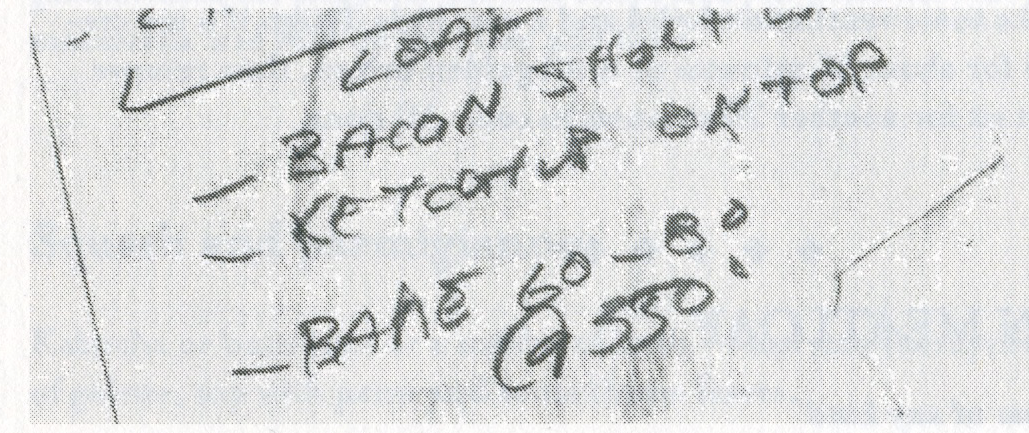 LOAF
- BACON
- KETCHUP ON TOP
- BAKE 60-80
@ 350°